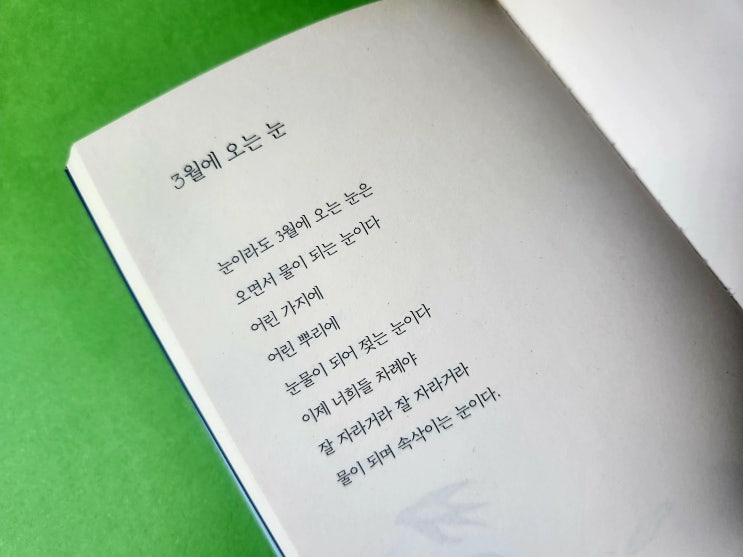 3월에 오는 눈
눈이라도 3월에 오는 눈은
오면서 물이 되는 눈이다
어린 가지에
어린 뿌리에
눈물이 되어 젖는 눈이다
이제 너희들 차례야
잘 자라거라 잘 자라거라
물이 되며 속삭이는 눈이다.